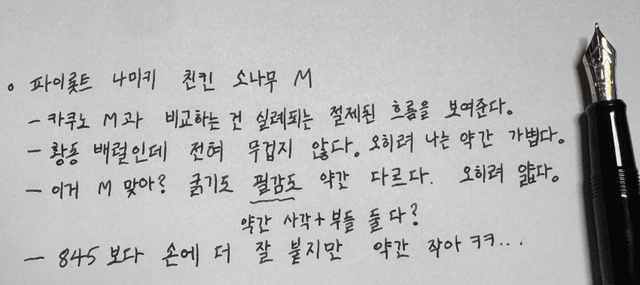 ○ 파이롯트 나미키 친킨 소나무 M
- 카쿠노 M과 비교하는 건 실례되는 절제된 흐름을 보여준다.
- 황동 배럴인데 전혀 무겁지 않다. 오히려 나는 약간 가볍다.
- 이거 M 맞아? 굵기도 필감도 약간 다르다. 오히려 얇다.
약간 사각+부들 둘 다?
- 845 보다 손에 더 잘 붙지만 약간 작아 ㅋㅋ...